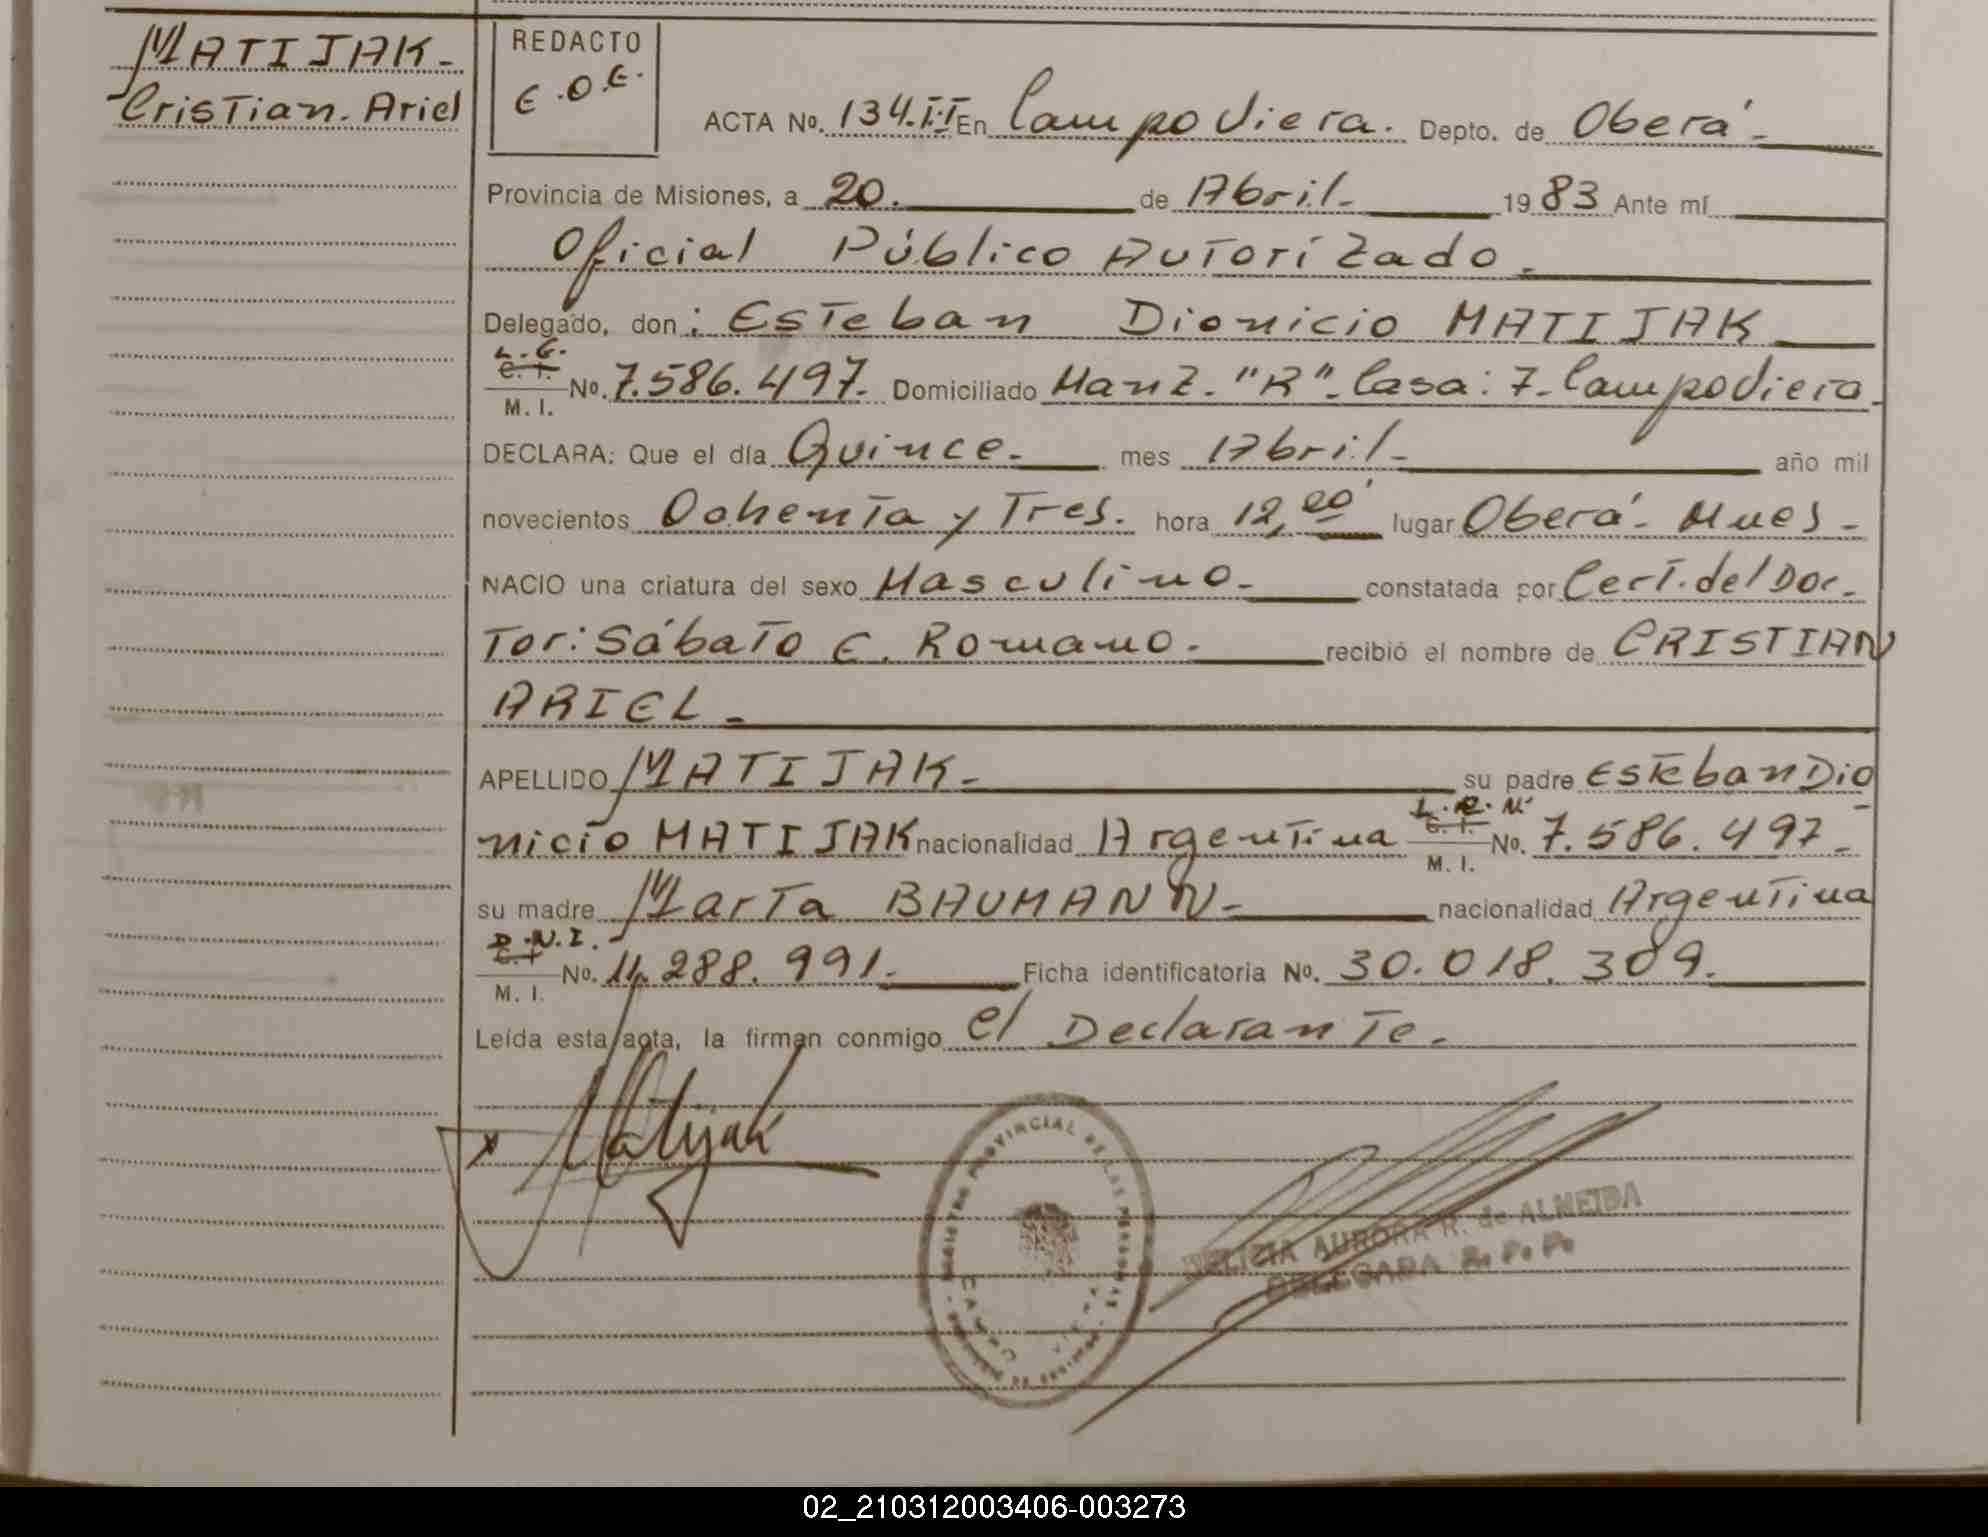 MATIJAK-
Cristian. Ariel
REDACTO
E.O.E.
ACTA No. 134.T:I En Campo Viera. Depto. de Oberá-
Provincia de Misiones, a 20. de Abril- 1983 Ante mí
Oficial Público Autorizado.
Delegado, don: Esteban Dionicio MATIJAK
L.E.
C. I.
M. I.
No. 7.586.497. Domiciliado Manz. "R"- Casa: 7- Campo Viera-
DECLARA: Que el día Quince- mes Abril- año mil
novecientos Ochenta y Tres. hora 12,20' lugar Oberá- Mnes-
NACIO una criatura del sexo Masculino- constatada por Cert. del Doc-
tor: Sábato E. Romano- recibió el nombre de CRISTIAN
ARIEL-
APELLIDO MATIJAK- su padre Esteban Dio
nicio MATIJAK nacionalidad Argentina
C. I.
M. I.
No. 7.586.497-
su madre Marta BAUMANN- nacionalidad Argentina
D.N.I.
C. I
M. I.
No. 11.288.991- Ficha identificatoria No. 30.018.309.
Leída esta acta, la firman conmigo el Declarante.
x Matijak
REGISTRO PROVINCIAL DE LAS PERSONAS
DELIZIA AURORA R. de ALMEIDA
DELEGADA R. P. P.
02_210312003406-003273